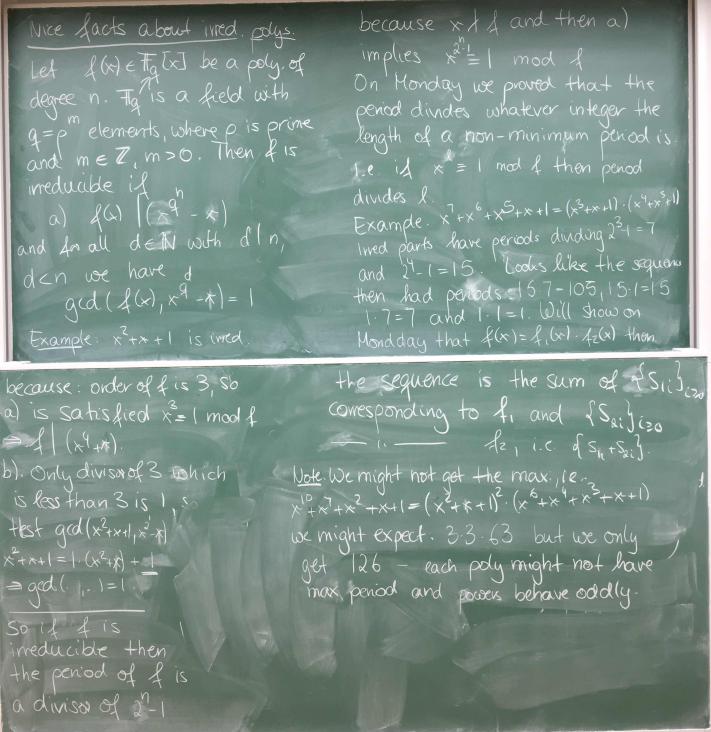 Nice facts about irred. polys.
Let f(x) ∈ F_q[x] be a poly. of
degree n. F_q is a field with
q = p^m elements, where p is prime
and m ∈ Z, m>0. Then f is
irreducible if
a) f(x) | (x^{q^n} - x)
and for all d ∈ N with d|n,
d<n we have
gcd(f(x), x^{q^d} - x) = 1
Example: x^2+x+1 is irred.
because: order of f is 3, so
a) is satisfied x^3 ≡ 1 mod f
⇒ f | (x^4+x).
b). Only divisor of 3 which
is less than 3 is 1, so
test gcd(x^2+x+1, x^2-x)
x^2+x+1 = 1·(x^2+x) + 1
⇒ gcd(·,·) = 1
So if f is
irreducible then
the period of f is
a divisor of 2^n-1
because x ∤ f and then a)
implies x^{2^n-1} ≡ 1 mod f
On Monday we proved that the
period divides whatever integer the
length of a non-minimum period is
i.e. if x^l ≡ 1 mod f then period
divides l.
Example. x^7+x^6+x^5+x+1 = (x^3+x+1)·(x^4+x^3+1)
Irred parts have periods dividing 2^3-1=7
and 2^4-1=15. Looks like the sequence
then had periods 15·7=105, 15·1=15
1·7=7 and 1·1=1. Will show on
Mondday that f(x)=f_1(x)·f_2(x) then
the sequence is the sum of {S_{1i}}_{i≥0}
corresponding to f_1 and {S_{2i}}_{i≥0}
—— ıı —— f_2, i.e. {S_{1i}+S_{2i}}.
Note. We might not get the max, i.e.
x^10+x^7+x^2+x+1 = (x^2+x+1)^2·(x^6+x^4+x^3+x+1)
we might expect 3·3·63 but we only
get 126 – each poly might not have
max period and powers behave oddly.